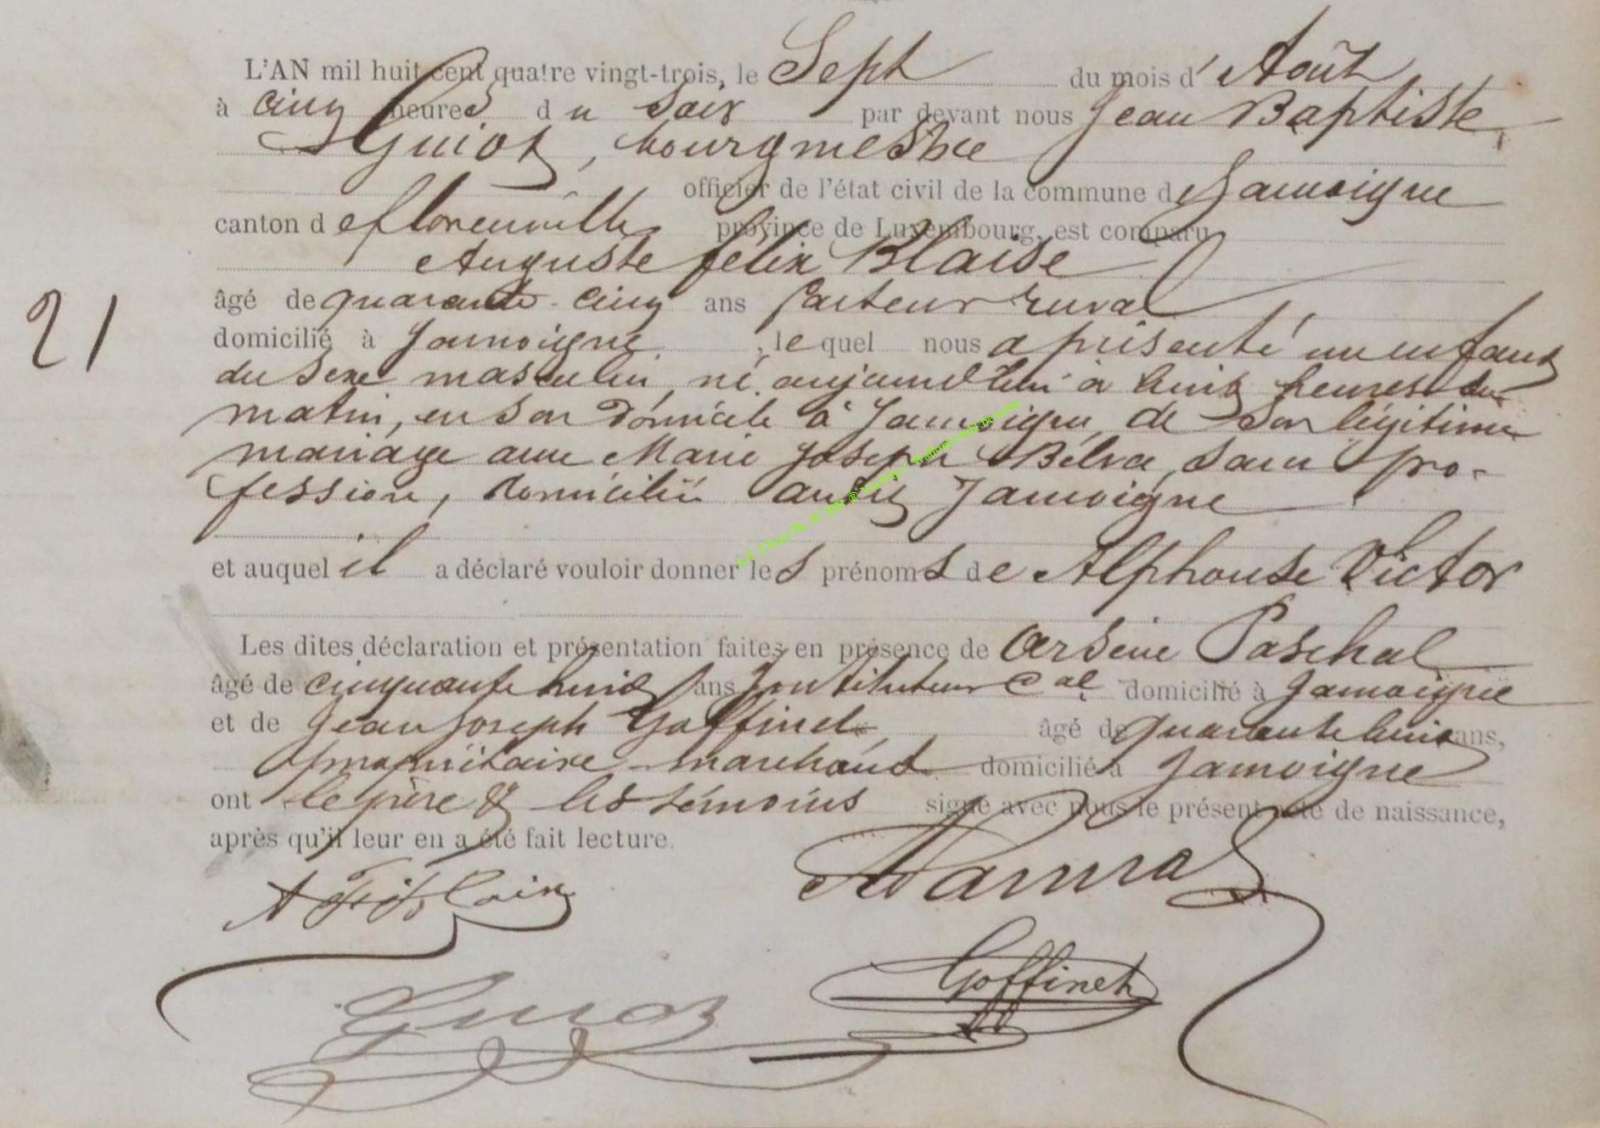 L'AN mil huit cent quatre vingt-trois, le Sept du mois d' Août
à cinq heures du soir par devant nous Jean Baptiste
Guiot, bourgmestre
officier de l'état civil de la commune de Jamoigne
canton de florenville province de Luxembourg, est comparu
Auguste félix Blaise
21
âgé de quarante-cinq ans facteur rural
domicilié à Jamoigne, lequel nous a présenté un enfant
du sexe masculin, né aujourd'hui à huit heures du
matin, en son domicile à Jamoigne, de son légitime
mariage avec Marie Joseph Belva, sans pro-
fession, domiciliée audit Jamoigne
et auquel il a déclaré vouloir donner les prénoms de Alphonse Victor
Les dites déclaration et présentation faites en présence de Arsène Paschal
âgé de cinquante huit ans Instituteur Cal domicilié à Jamoigne
et de Jean Joseph Goffinet âgé de quarante huit ans,
propriétaire marchand domicilié à Jamoigne
ont le père & les témoins signé avec nous le présent acte de naissance,
après qu'il leur en a été fait lecture.
Goffinet
Guiot